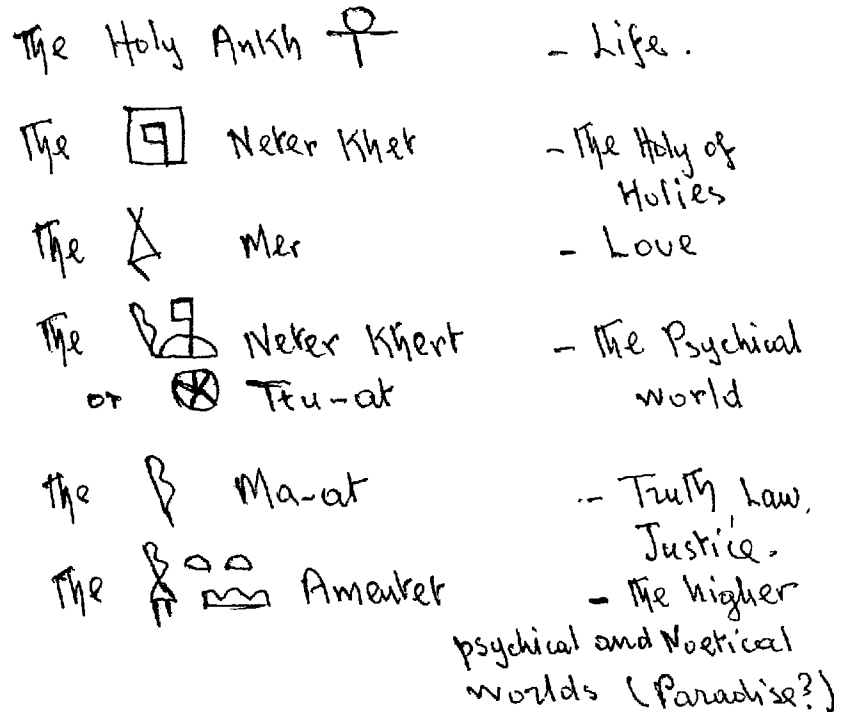 The Holy Ankh ☥ - Life.
The Neter Khet - The Holy of
Holies
The Mer - Love
The Neter Khert - the Psychical
or Ttu-at world
the Ma-at - Truth Law,
Justice.
The Amentet - the higher
psychical and Noetical
worlds (Paradise?)